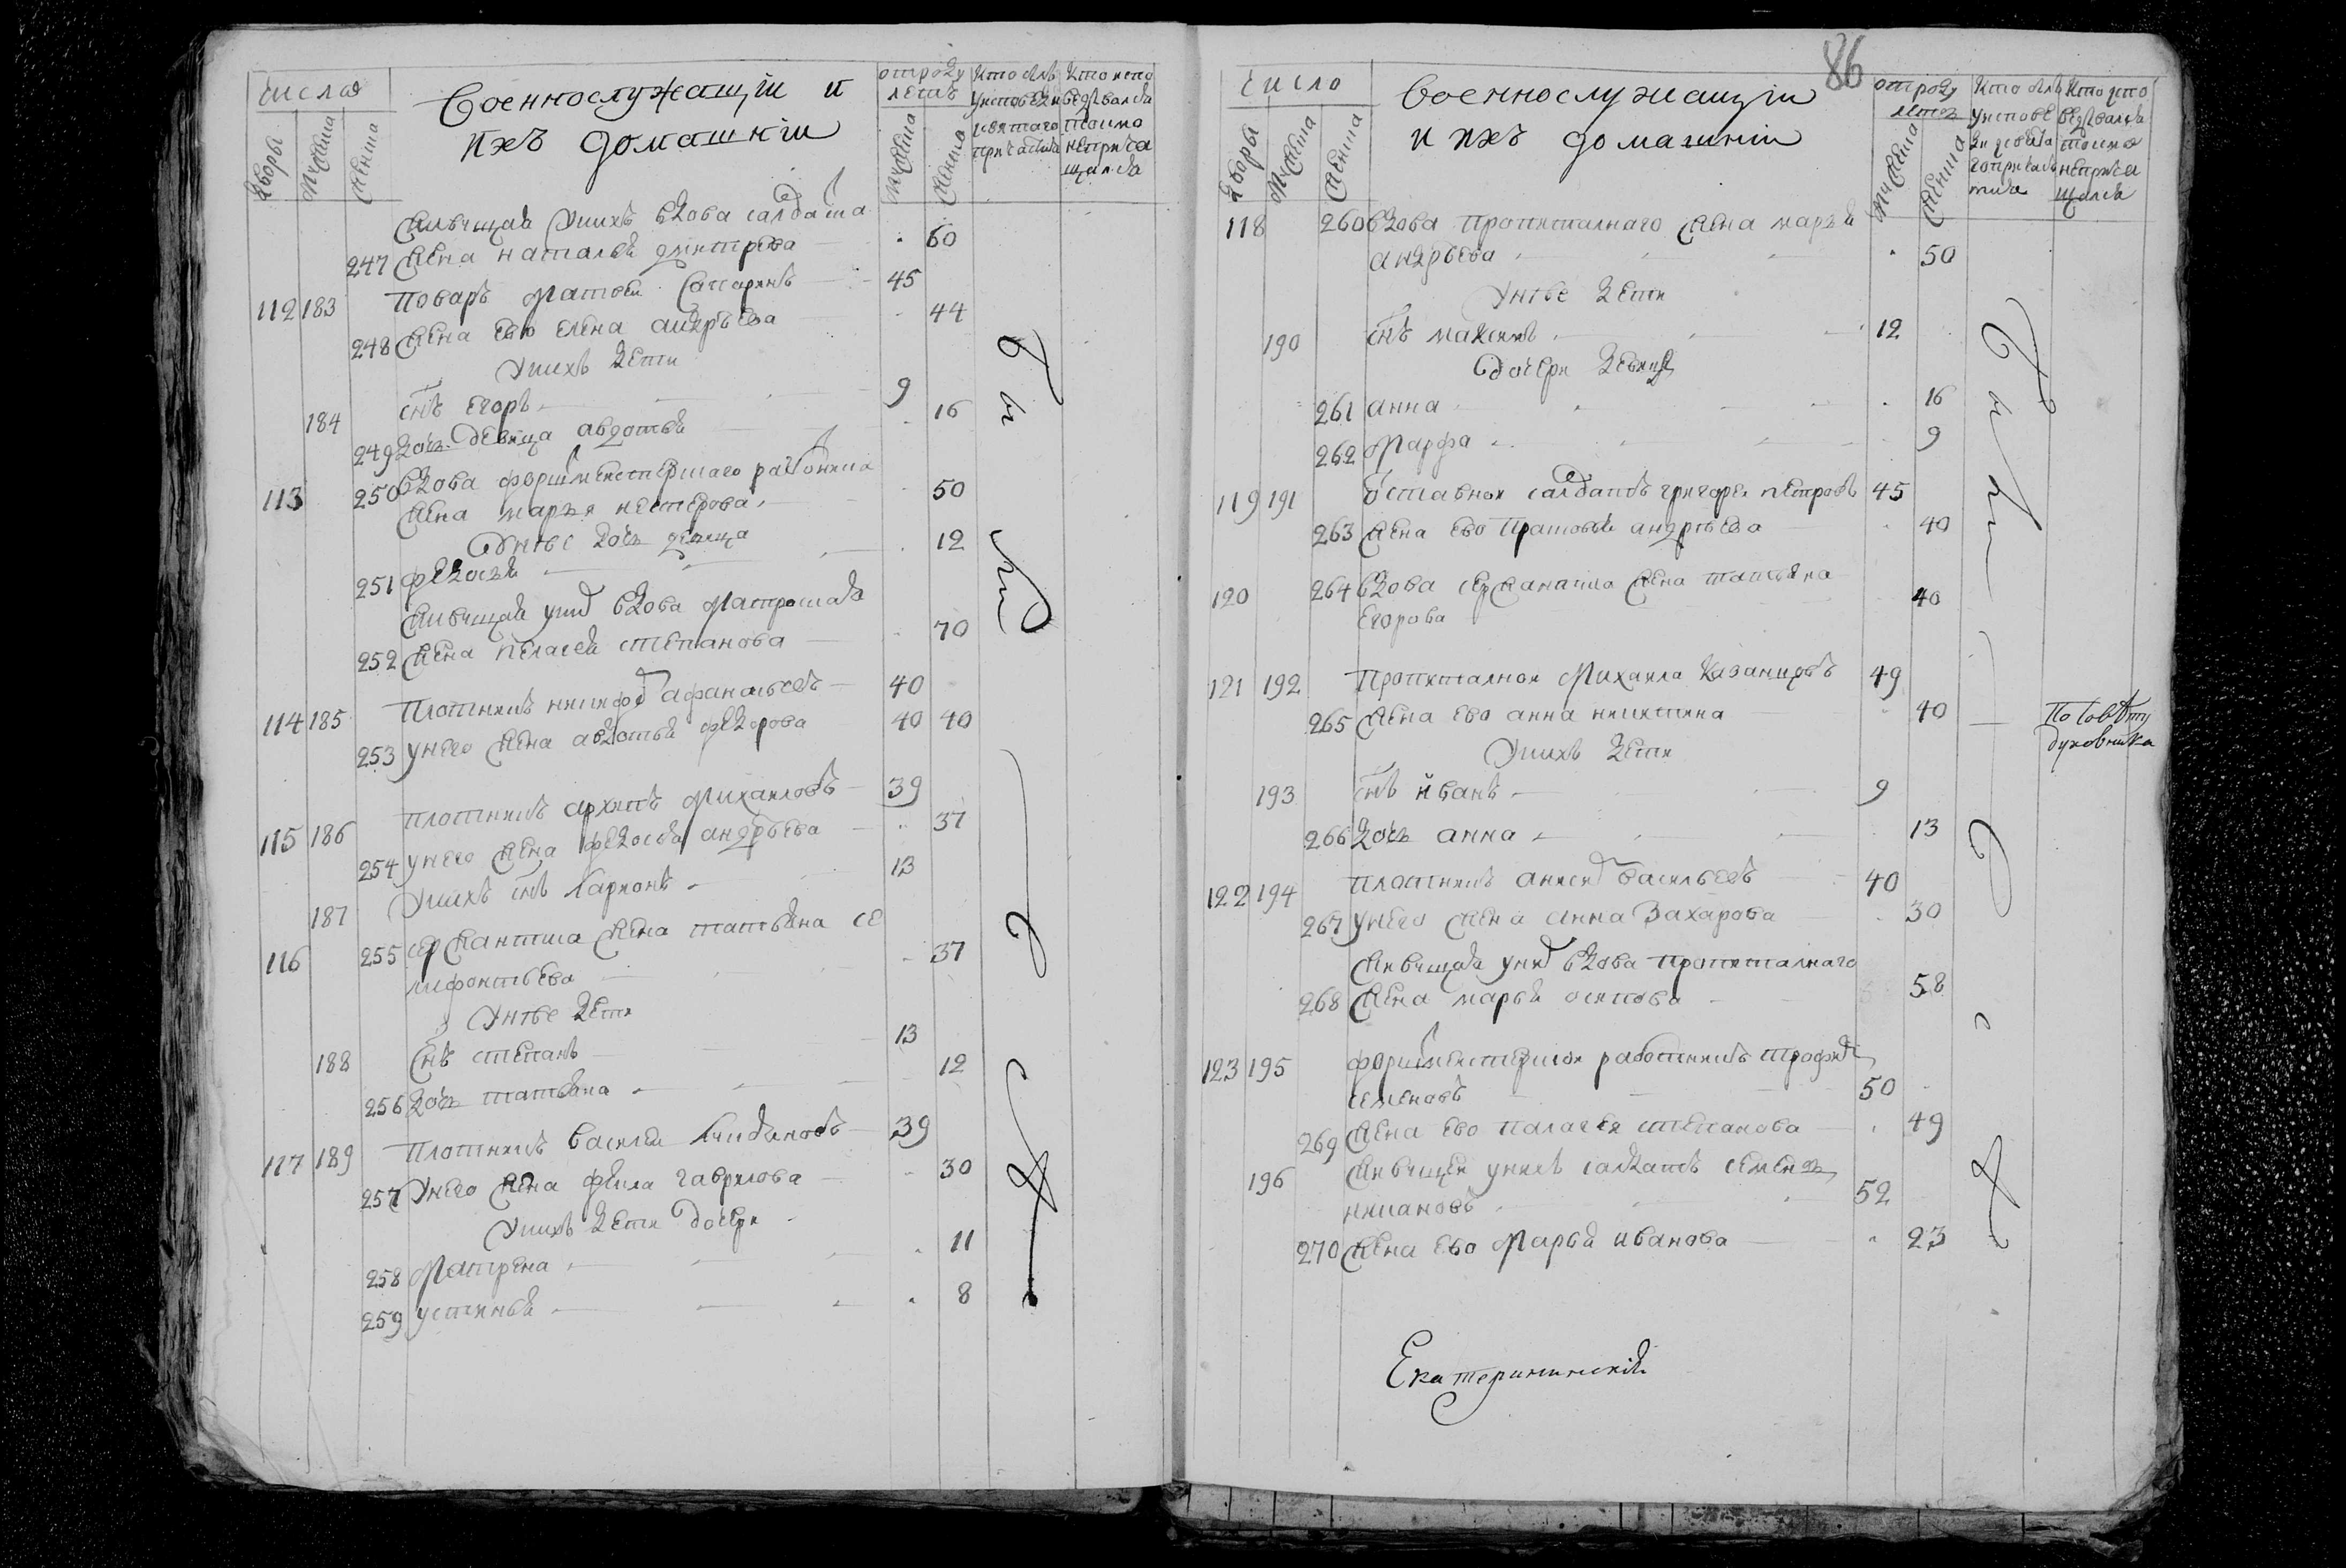 числа
Военнослужащіи и
ихъ домашніи
отроду
летъ
дворы
мужеска
женска
мужеска
женска
кто былъ
у исповеди
и святаго
причастия
кто испо
ведвался
токмо
неприча
щался
Живущая у нихъ вдова салдатска
247 жена наталья дмитрева 60
112 183 поваръ Матвеи 45
248 жена ево елена андрѣева 44
У нихъ дети
184 снъ егоръ 9
249 дочь девица авдотья 16
113 250 вдова форшмеистерскаго работника
жена марья нестерова 50
У нее дочь девица
251 федосья 12
Живущая у ни вдова Матроская
252 жена пелагея степанова 70
114 185 Плотникъ никифоръ афанасьевъ 40
253 у него жена авдотья федорова 40 40
115 186 плотникъ архипъ Михаиловъ 39
254 у него жена федосья андрѣева 37
187 У нихъ снъ Ларионъ 13
116 255 сержантска жена татьяна се
лифонтьева 37
У нее дети
188 Снъ степанъ 13
256 дочь татьяна 12
117 189 Плотникъ василеи 39
257 У него жена фекла гаврилова 30
У нихъ дети дочери
258 Матрена 11
259 устинья 8
были
86
число
Военнослужащіи
и ихъ домашніи
отроду
летъ
дворы
мужеска
женска
мужеска
женска
кто былъ
у испове
ди и свята
го прича
стия
кто испо
ведвался
токмо
неприча
щался
118 260 вдова пропиталнаго жена марья
андрѣева 50
У нее дети
190 снъ максимъ 12
дочери девицы
261 анна 16
262 Марфа 9
119 191 отставнои салдатъ григореи петровъ 45
263 жена ево Пратовья андрѣева 40
120 264 вдова сержантска жена татьяна
егорова 40
121 192 Пропиталнои Михаила Казанцовъ 49
265 жена ево анна никитина 40
По совѣту
духовника
У нихъ дети
193 снъ иванъ 9
266 дочь анна 13
122 194 плотникъ анисимъ васильевъ 40
267 у него жена анна Захарова 30
Живущая у них вдова пропиталнаго
268 жена марья осипова 58
123 195 форшмеистерскои работникъ трофимъ
семеновъ 50
269 жена ево палагея степанова 49
196 живущеи у нихъ салдатъ семенъ
52
270 жена ево Марья иванова 23
были
Екатерининскій